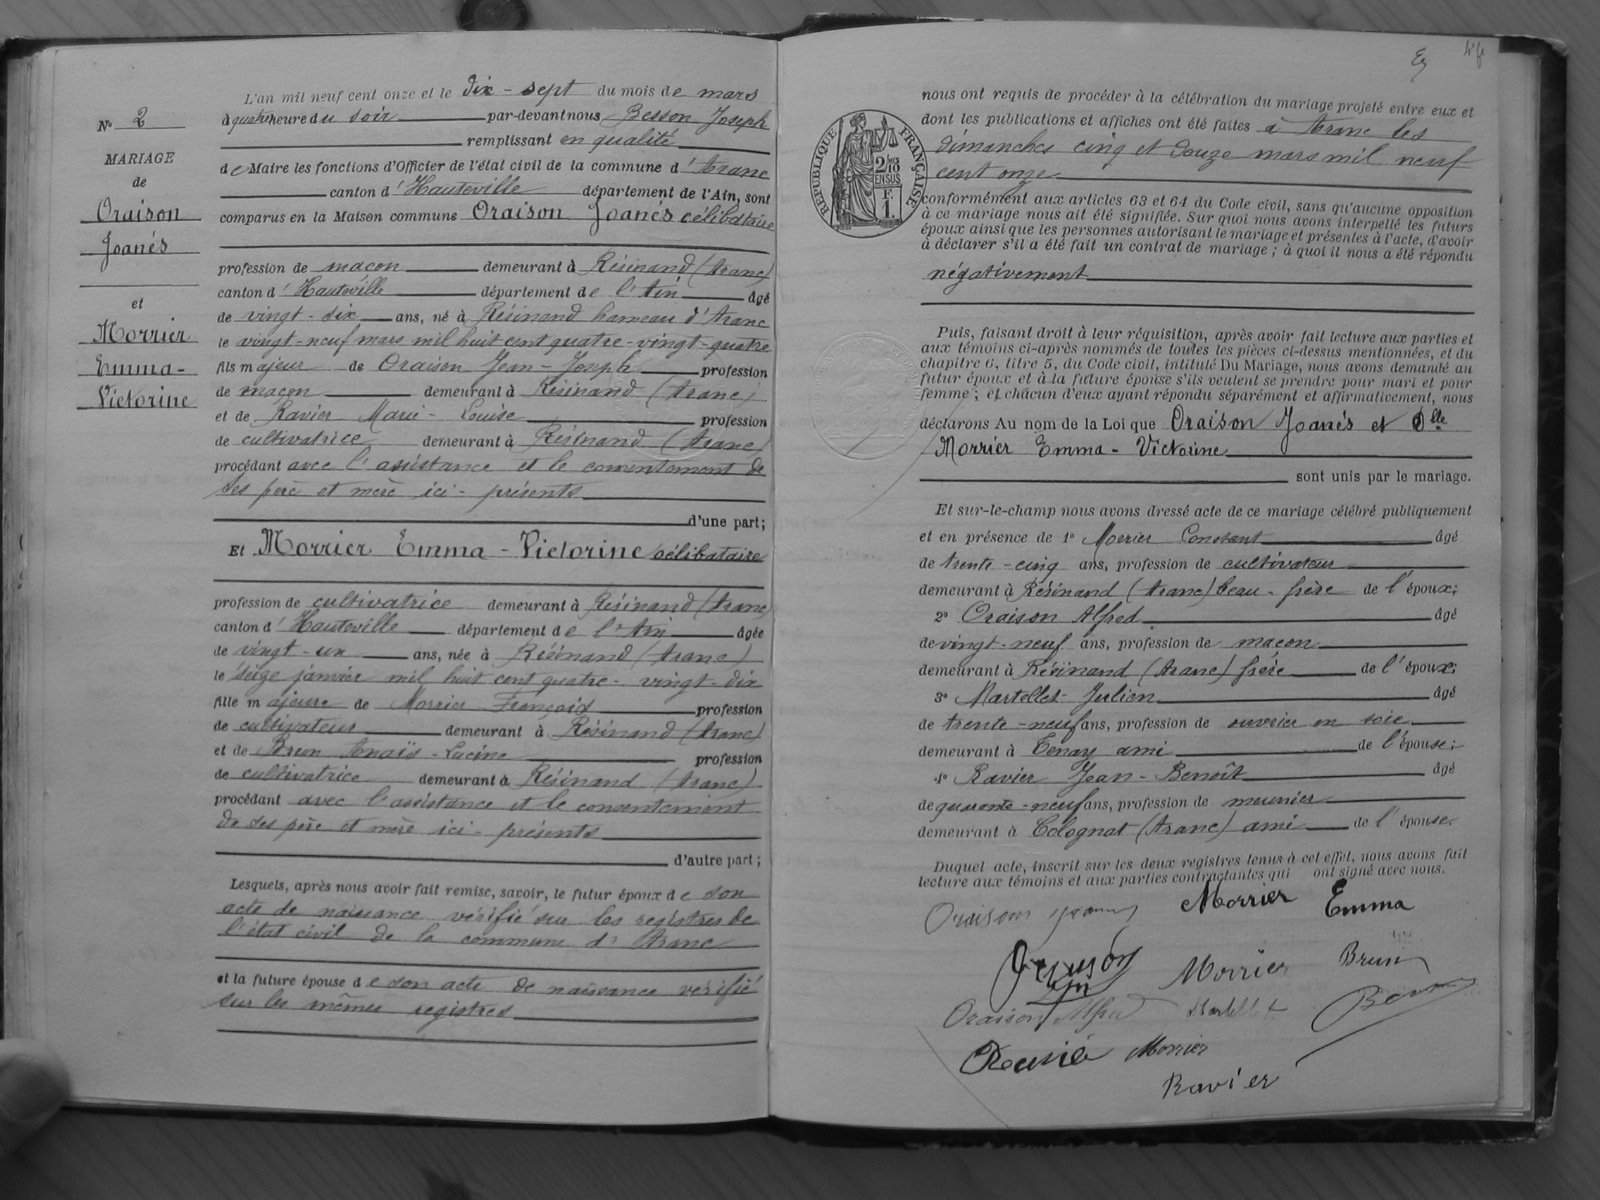 N° 2
MARIAGE
de
Oraison
Joanés
et
Morrier
Emma-
Victorine
L'an mil neuf cent onze et le dix-sept du mois de mars
à quatre heure du soir par-devant nous Besson Joseph
remplissant en qualité
de Maire les fonctions d'Officier de l'état civil de la commune d'Aranc
canton d'Hauteville département de l'Ain, sont
comparus en la Maison commune Oraison Joanés célibataire
profession de maçon demeurant à Résinand (Aranc)
canton d'Hauteville département de l'Ain âgé
de vingt-six ans, né à Résinand hameau d'Aranc
le vingt-neuf mars mil huit cent quatre-vingt-quatre
fils majeur de Oraison Jean-Joseph profession
de maçon demeurant à Résinand (Aranc)
et de Ravier Marie-Louise profession
de cultivatrice demeurant à Résinand (Aranc)
procédant avec l'assistance et le consentement de
ses père et mère ici-présents
d'une part;
Et Morrier Emma-Victorine célibataire
profession de cultivatrice demeurant à Résinand (Aranc)
canton d'Hauteville département de l'Ain âgée
de vingt-un ans, née à Résinand (Aranc)
le seize janvier mil huit cent quatre-vingt-dix
fille majeure de Morrier François profession
de cultivateur demeurant à Résinand (Aranc)
et de Brun Anaïs-Lucine profession
de cultivatrice demeurant à Résinand (Aranc)
procédant avec l'assistance et le consentement
de ses père et mère ici-présents
d'autre part;
Lesquels, après nous avoir fait remise, savoir, le futur époux de son
acte de naissance vérifié sur les registres de
l'état civil de la commune d'Aranc
et la future épouse de son acte de naissance vérifié
sur les mêmes registres
nous ont requis de procéder à la célébration du mariage projeté entre eux et
dont les publications et affiches ont été faites à Aranc les
dimanches cinq et douze mars mil neuf
cent onze
RÉPUBLIQUE FRANÇAISE
conformément aux articles 63 et 64 du Code civil, sans qu'aucune opposition
à ce mariage nous ait été signifiée. Sur quoi nous avons interpellé les futurs
époux ainsi que les personnes autorisant le mariage et présentes à l'acte, d'avoir
à déclarer s'il a été fait un contrat de mariage; à quoi il nous a été répondu
négativement
Puis, faisant droit à leur réquisition, après avoir fait lecture aux parties et
aux témoins ci-après nommés de toutes les pièces ci-dessus mentionnées, et du
chapitre 6, titre 5, du Code civil, intitulé Du Mariage, nous avons demandé au
futur époux et à la future épouse s'ils veulent se prendre pour mari et pour
femme; et chacun d'eux ayant répondu séparément et affirmativement, nous
déclarons Au nom de la Loi que Oraison Joanés et Dlle
Morrier Emma-Victorine
sont unis par le mariage.
Et sur-le-champ nous avons dressé acte de ce mariage célébré publiquement
et en présence de 1° Morrier Constant âgé
de trente-cinq ans, profession de cultivateur
demeurant à Résinand (Aranc) beau-frère de l'époux;
2° Oraison Alfred âgé
de vingt-neuf ans, profession de maçon
demeurant à Résinand (Aranc) frère de l'époux;
3° Martellet Julien âgé
de trente-neuf ans, profession de ouvrier en soie
demeurant à Tenay ami de l'épouse;
4° Ravier Jean-Benoît âgé
de quarante-neuf ans, profession de meunier
demeurant à Colognat (Aranc) ami de l'épouse
Duquel acte, inscrit sur les deux registres tenus à cet effet, nous avons fait
lecture aux témoins et aux parties contractantes qui ont signé avec nous.
Oraison Morrier Emma
Morrier Brun
Oraison Alfred Martellet
Morrier
Ravier